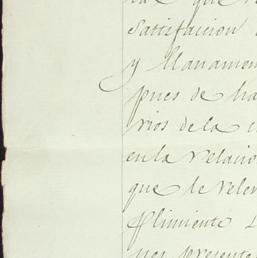 que
satisfacion
y llanamen
pues de ha
rios de la
en la relacio
que le rele
plimiento
nos presente